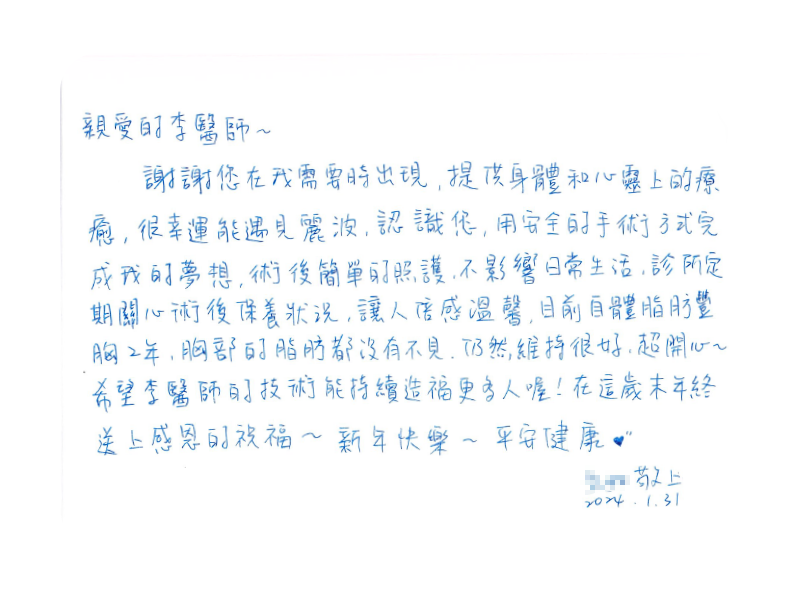 親愛的李醫師~
謝謝您在我需要時出現,提供身體和心靈上的療
癒,很幸運能遇見麗波,認識您,用安全的手術方式完
成我的夢想,術後簡單的照護,不影響日常生活,診所定
期關心術後保養狀況,讓人倍感溫馨,目前自體脂肪豐
胸2年,胸部的脂肪都沒有不見,仍然維持很好,超開心~
希望李醫師的技術能持續造福更多人喔!在這歲末年終
送上感恩的祝福~ 新年快樂~ 平安健康♥"
敬上
2024.1.31